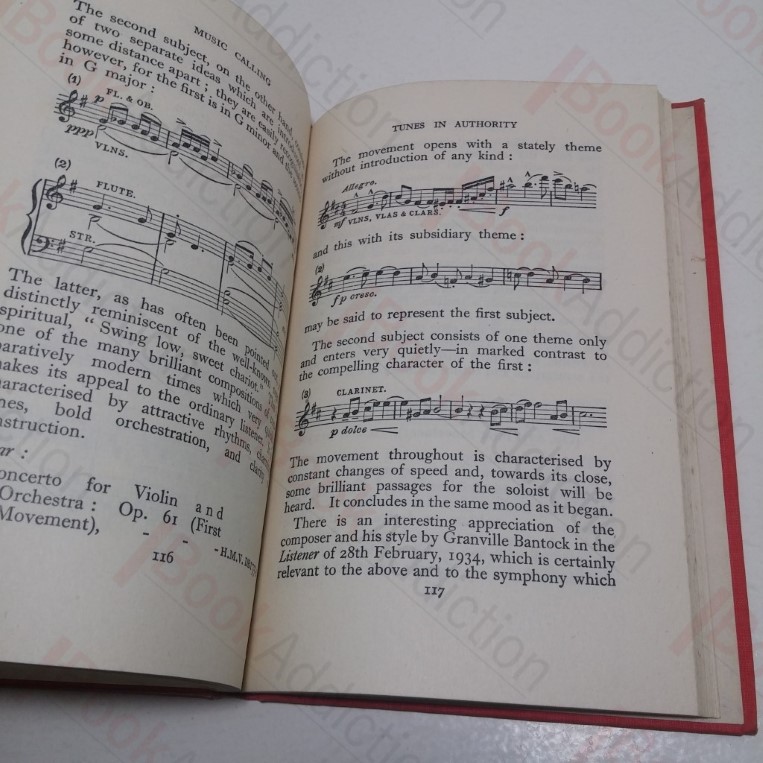 MUSIC CALLING
The second subject, on the other hand,
of two separate ideas which are
some distance apart; they are easily
however, for the first is in G minor and
in G major :
(1)
FL. & OB.
p
ppp
VLNS.
(2)
FLUTE.
STR.
The latter, as has often been pointed
distinctly reminiscent of the well-known
spiritual, “ Swing low, sweet chariot.”
one of the many brilliant compositions of
paratively modern times which very
makes its appeal to the ordinary listener.
haracterised by attractive rhythms,
nes, bold orchestration, and
nstruction.
ar :
oncerto for Violin and
Orchestra : Op. 61 (First
Movement), - - - H.M.V.
116
TUNES IN AUTHORITY
The movement opens with a stately theme
without introduction of any kind :
Allegro.
mf VLNS, VLAS & CLARS. f
and this with its subsidiary theme :
(2)
fp cresc.
may be said to represent the first subject.
The second subject consists of one theme only
and enters very quietly—in marked contrast to
the compelling character of the first :
(3) CLARINET.
p dolce
The movement throughout is characterised by
constant changes of speed and, towards its close,
some brilliant passages for the soloist will be
heard. It concludes in the same mood as it began.
There is an interesting appreciation of the
composer and his style by Granville Bantock in the
Listener of 28th February, 1934, which is certainly
relevant to the above and to the symphony which
117
BookAddiction